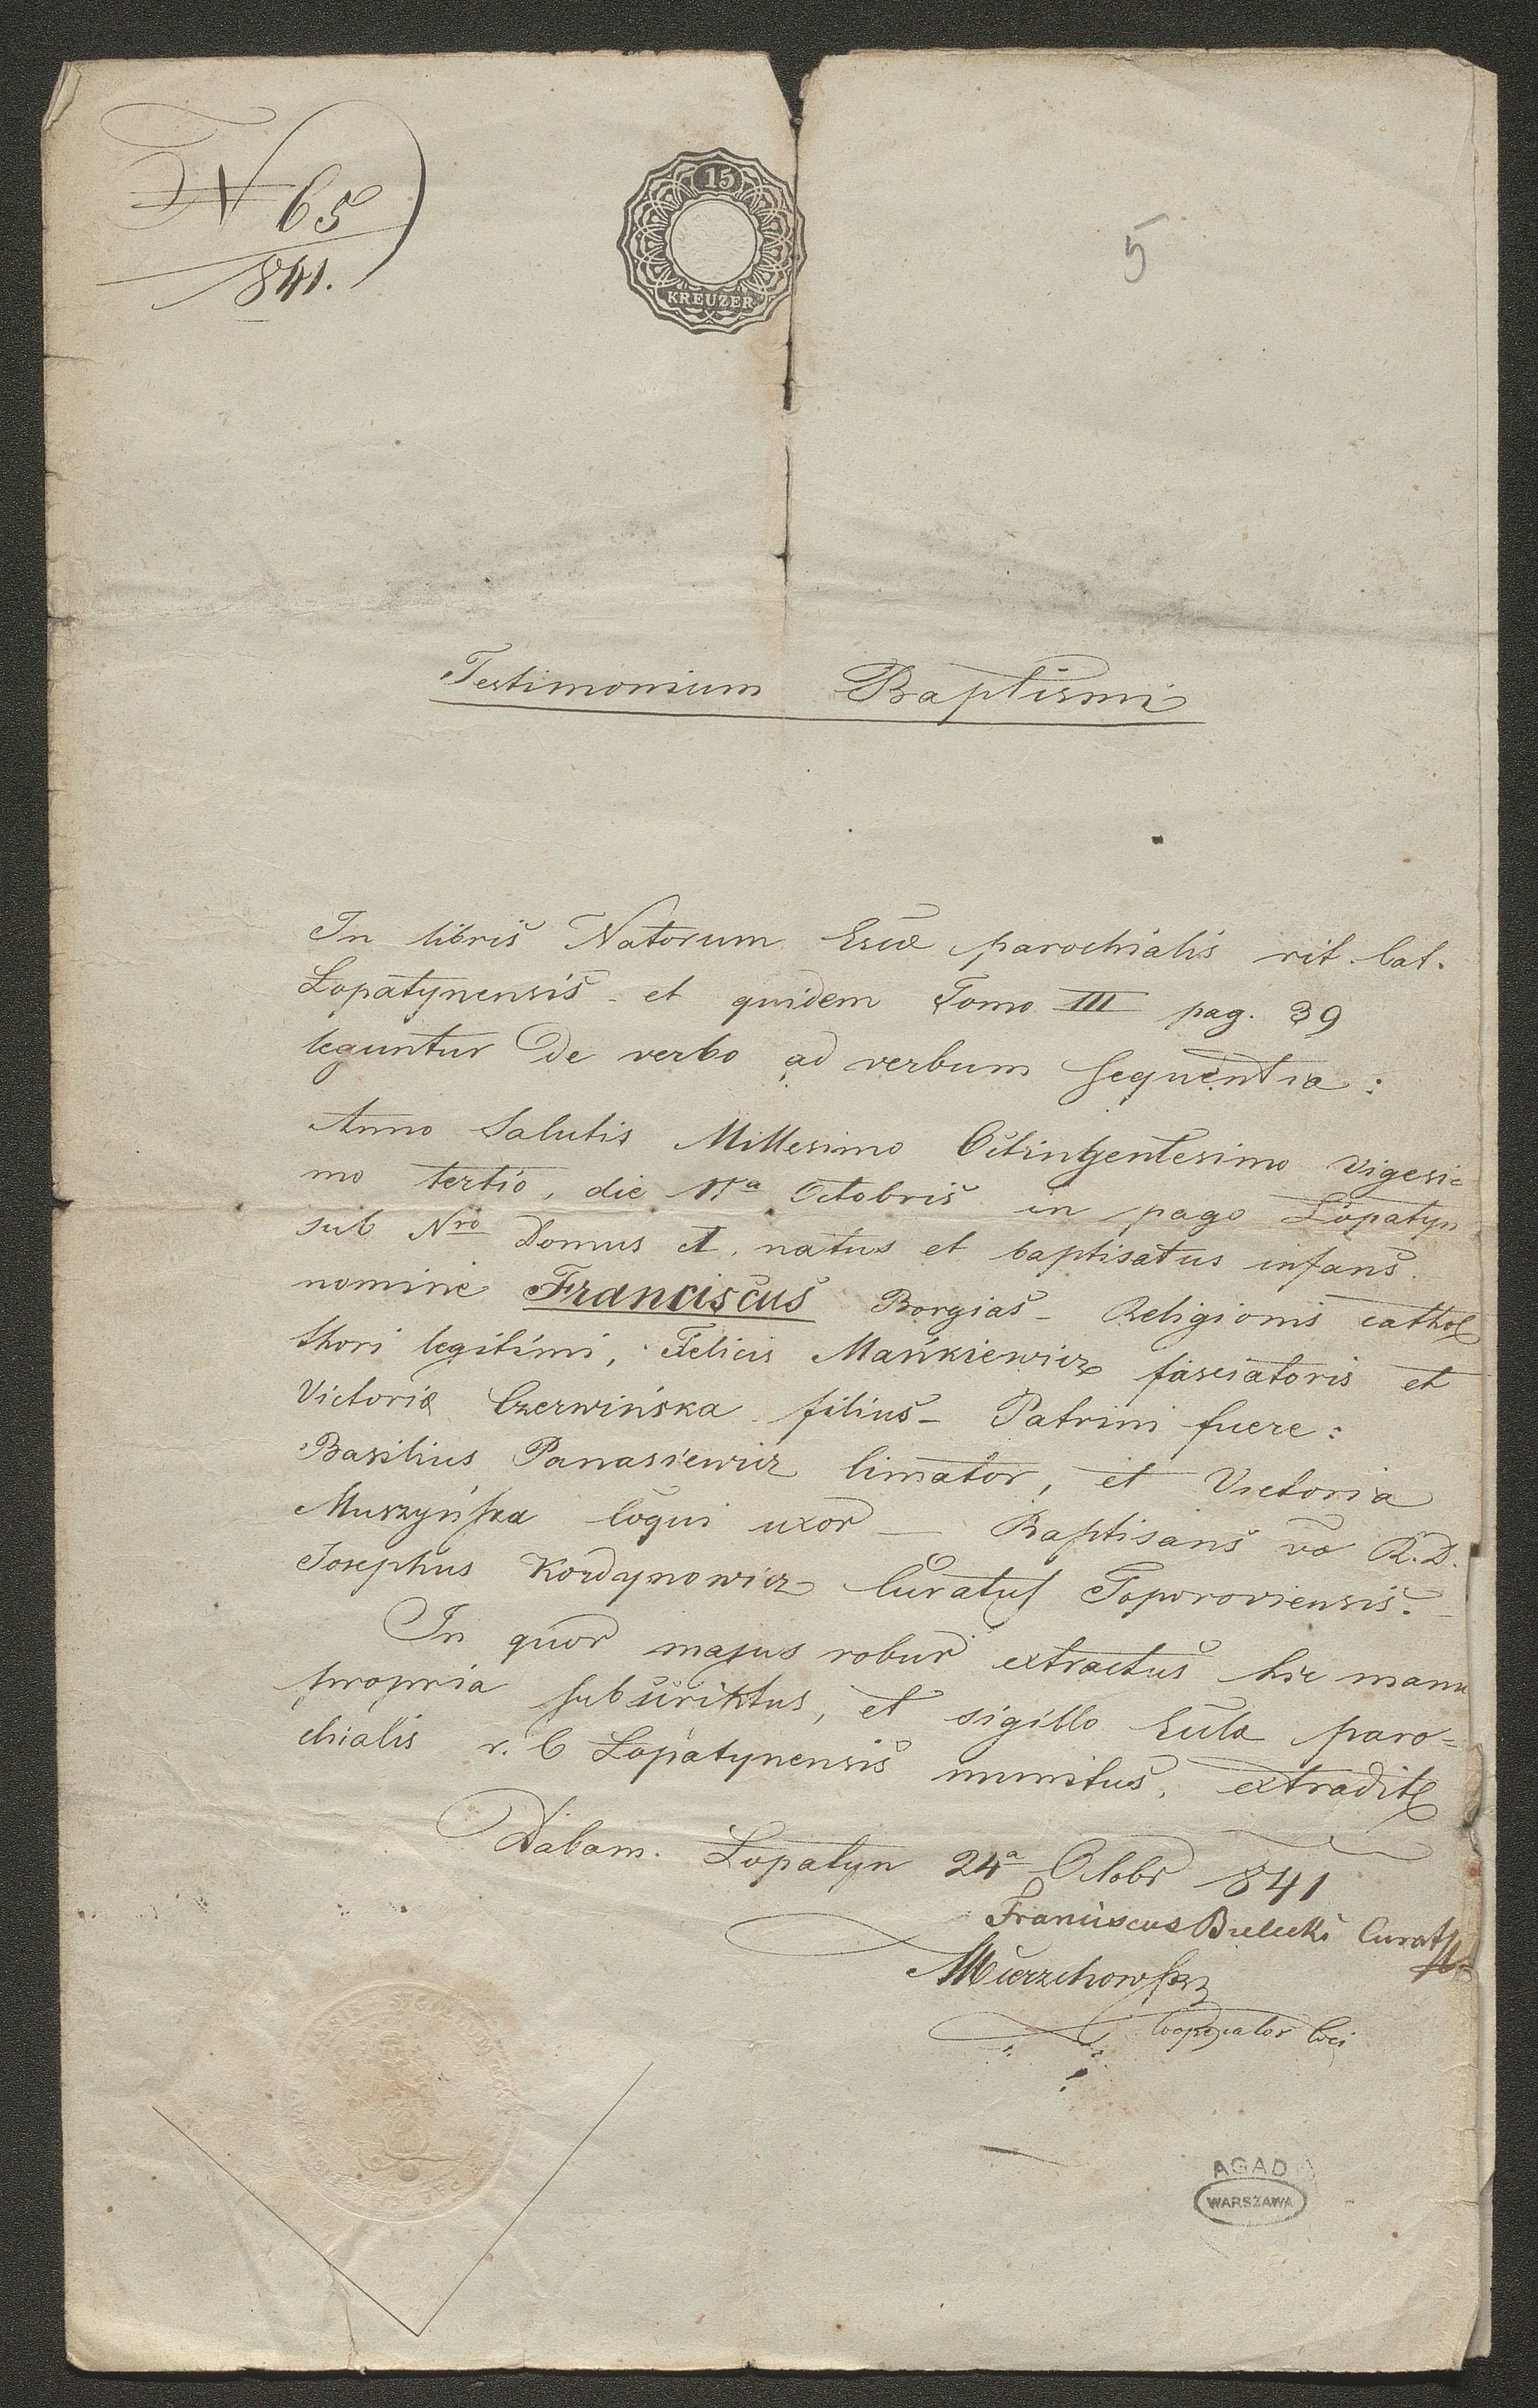 N 65
841.
15
KREUZER
5
Testimonium Baptismi
In libris Natorum Ecclæ parochialis rit. lat.
Lopatynensis et quidem Tomo III pag. 39
leguntur de verbo ad verbum sequentia:
Anno Salutis Millesimo Octingentesimo Vigesi=
mo tertio, die 11ª Octobris in pago Lopatyn
sub Nro Domus 1. natus et baptisatus infans
nomine Franciscus Borgias – Religionis cathol
thori legitimi, Felicis Mańkiewicz fasciatoris et
Victoriæ Czerwińska filius – Patrini fuere:
Basilius Panasiewicz limator, et Victoria
Muszyńska coqui uxor — Baptisans vo R. D.
Josephus Kordynowicz Curatus Toporoviensis. –
In quor majus robur extractus hic manu
propria subscriptus, et sigillo Eccla paro=
chialis r. l Lopatynensis munitus, extradit
Dabam. Lopatyn 24ª Octobr 841
Franciscus Bielecki Curat
Mierzchowski
Cooperator loci
AGAD
WARSZAWA